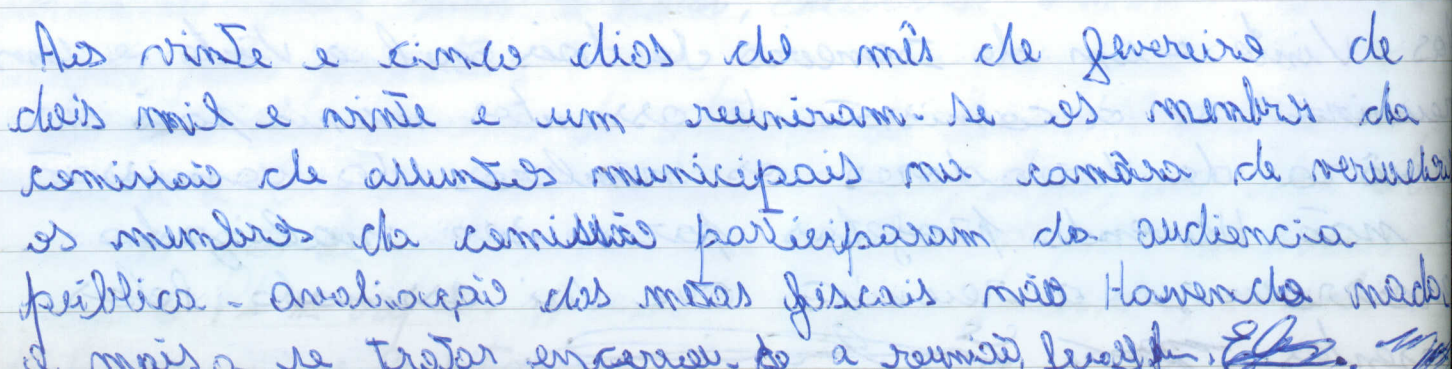 Aos vinte e cinco dias do mês de fevereiro de
dois mil e vinte e um reuniram-se os membros da
comissão de assuntos municipais na camâra de vereadores
os membros da comissão participaram da audiencia
pública - avaliação das metas fiscais não Havendo nada
a mais a se tratar encerrou-se a reunião,